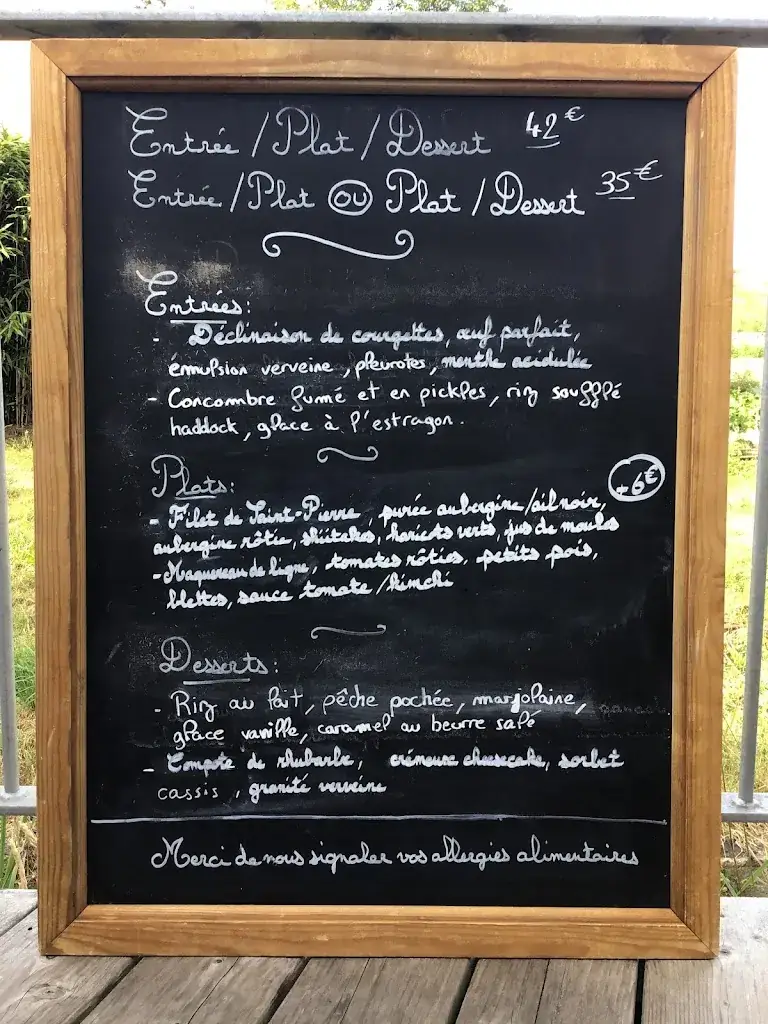 Entrée / Plat / Dessert 42€
Entrée / Plat OU Plat / Dessert 35€
Entrées:
- Déclinaison de courgettes, œuf parfait,
émulsion verveine, pleurotes, menthe acidulée
- Concombre fumé et en pickles, riz soufflé
haddock, glace à l'estragon.
Plats:
- Filet de Saint-Pierre, purée aubergine/ail noir, +6€
aubergine rôtie, shiitakes, haricots verts, jus de moules
- Maquereau de ligne, tomates rôties, petits pois,
blettes, sauce tomate / kimchi
Desserts:
- Riz au lait, pêche pochée, marjolaine,
glace vanille, caramel au beurre salé
- Compote de rhubarbe, crémeux cheesecake, sorbet
cassis, granité verveine
Merci de nous signaler vos allergies alimentaires